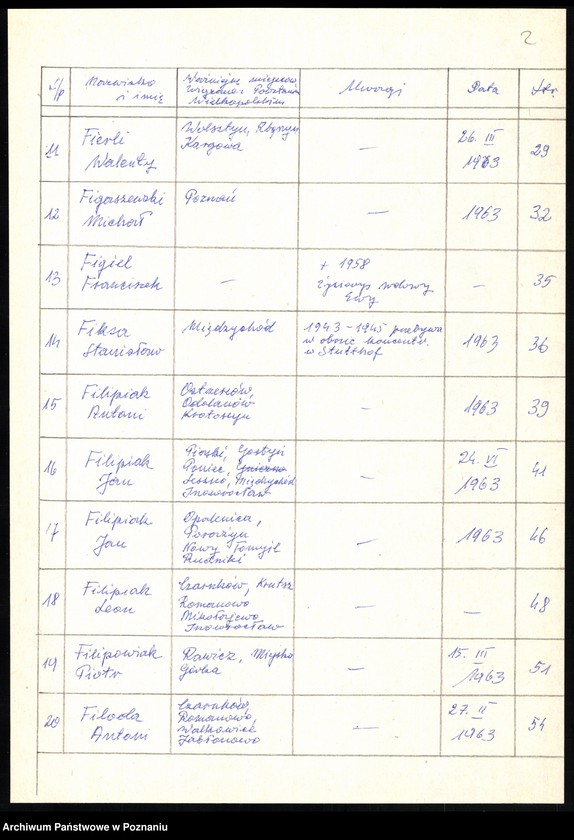 2
L/p
Nazwisko
i imię
Ważniejsze miejscow.
związane z Powstaniem
Wielkopolskim
Uwagi
Data
Str.
11
Fierli
Walenty
Wolsztyn,
Kargowa
—
26. III
1963
29
12
Figaszewski
Michał
Poznań
—
1963
32
13
Figiel
Franciszek
—
+ 1958
Życiorys wdowy
Ewy
—
35
14
Fiksa
Stanisław
Międzychód
1943 - 1945 przebywa
w obozie koncentr.
w Stutthof
1963
36
15
Filipiak
Antoni
Ostrzeszów,
Odolanów
Krotoszyn
—
1963
39
16
Filipiak
Jan
Piaski, Gostyń
Poniec, Gniezno
Leszno, Międzychód
Inowrocław
—
24. VI
1963
41
17
Filipiak
Jan
Opalenica,
Porażyn
Nowy Tomyśl
Rudniki
—
1963
46
18
Filipiak
Leon
Czarnków,
Romanowo
Mikołajewo
Inowrocław
—
—
48
19
Filipowiak
Piotr
Rawicz, Miejska
Górka
—
15. III
1963
51
20
Filoda
Antoni
Czarnków,
Romanowo,
Walkowice
Jabłonowo
—
27. II
1963
54
Archiwum Państwowe w Poznaniu